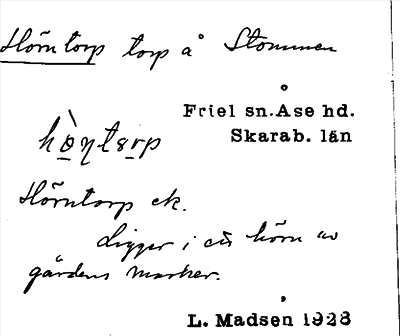 Hörntorp torp å Stommen
Friel sn. Åse hd.
Skarab. län
hò̱ṇtærp
Hörntorp ek.
Ligger i ett hörn av
gårdens marker.
L. Madsén 1928